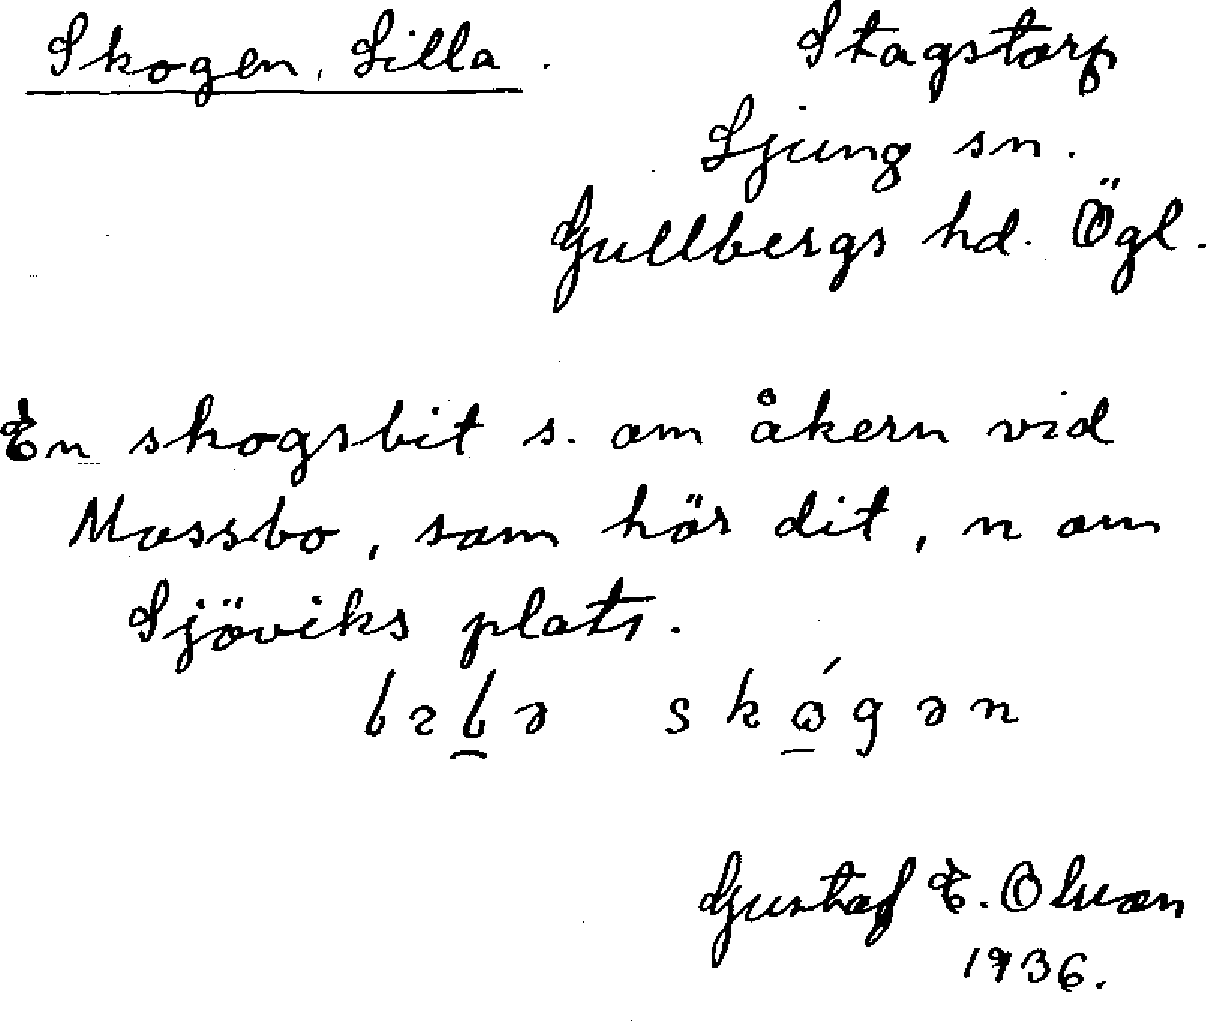 Skogen, Lilla.
Stagstorp
Ljung sn.
Gullbergs hd. Ögl.
En skogsbit s. om åkern vid
Mossbo, som hör dit, n om
Sjöviks plats.
Gustaf E. Olsson
1936.